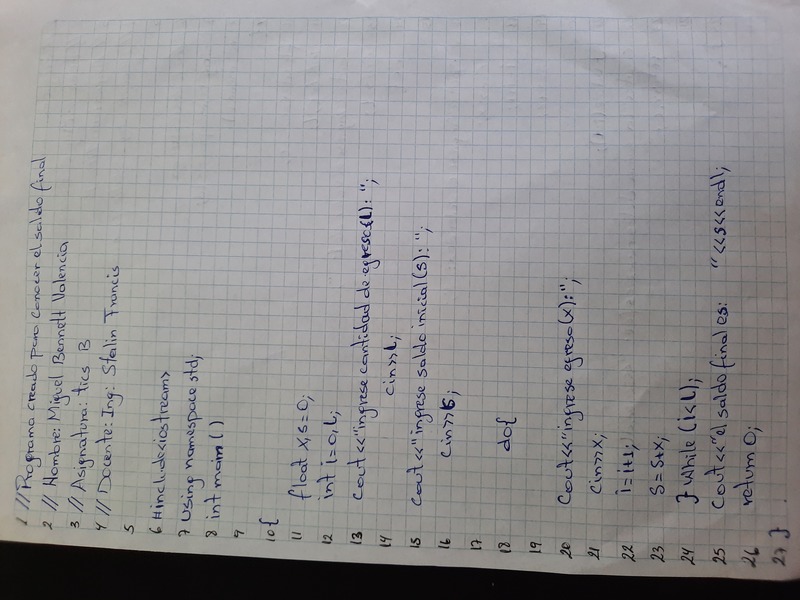 1 //Programa creado para conocer el saldo final
2 // Nombre: Miguel Bennett Valencia
3 // Asignatura: tics B
4 // Docente: Ing: Stalin Francis
5
6 #include<iostream>
7 Using namespace std;
8 int main ()
9
10 {
11 float x,s=0;
12 int i=0,L;
13 Cout<<"ingrese cantidad de egreso(L): ";
14 cin>>L;
15 Cout<<"ingrese saldo inicial(s): ";
16 Cin>>s;
17
18 do{
19
20 Cout<<"ingrese egreso(x):";
21 Cin>>x;
22 i=i+1;
23 S=S+x;
24 } while (i<L);
25 Cout<<"el saldo final es: "<<s<<endl;
26 return 0;
27 }